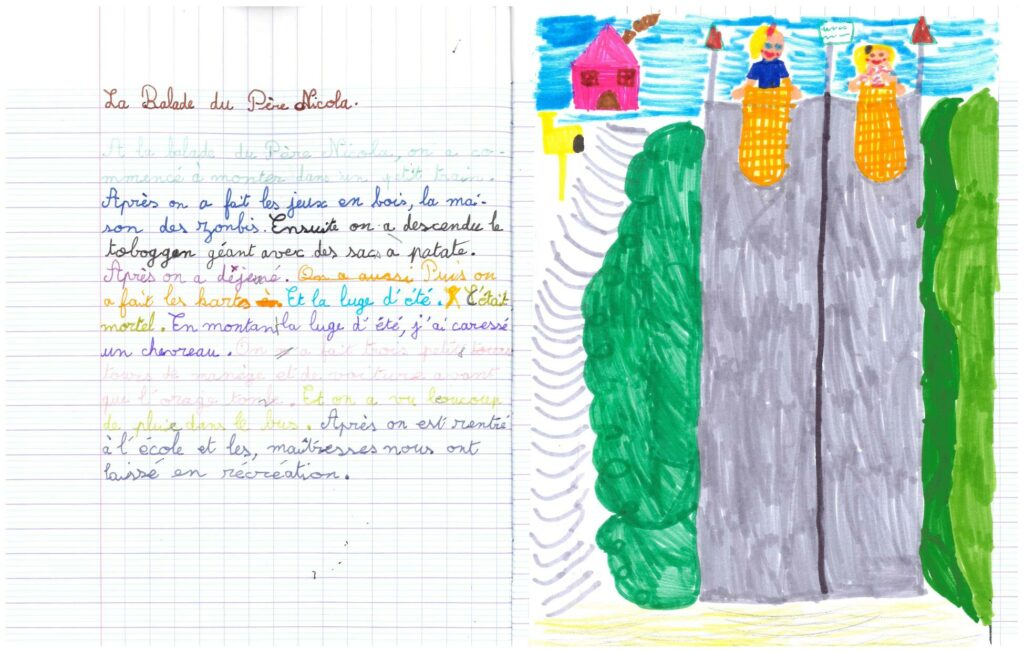 La Balade du Père Nicola.
A la balade du Père Nicola, on a co-
mmencé à monter dans un petit train.
Après on a fait les jeux en bois, la mai-
son des zonbis. Ensuite on a descendu le
toboggan géant avec des sacs à patate.
Après on a déjeuné. On a aussi Puis on
a fait les karts Et la luge d'été. C'était
mortel. En montant la luge d'été, j'ai caressé
un chevreau. On a fait trois petits tours
tours de manège et de voitures avant
que l'orage tombe. Et on a vu beaucoup
de pluie dans le bus. Après on est rentré
à l'école et les, maîtresses nous ont
laissé en récréation.